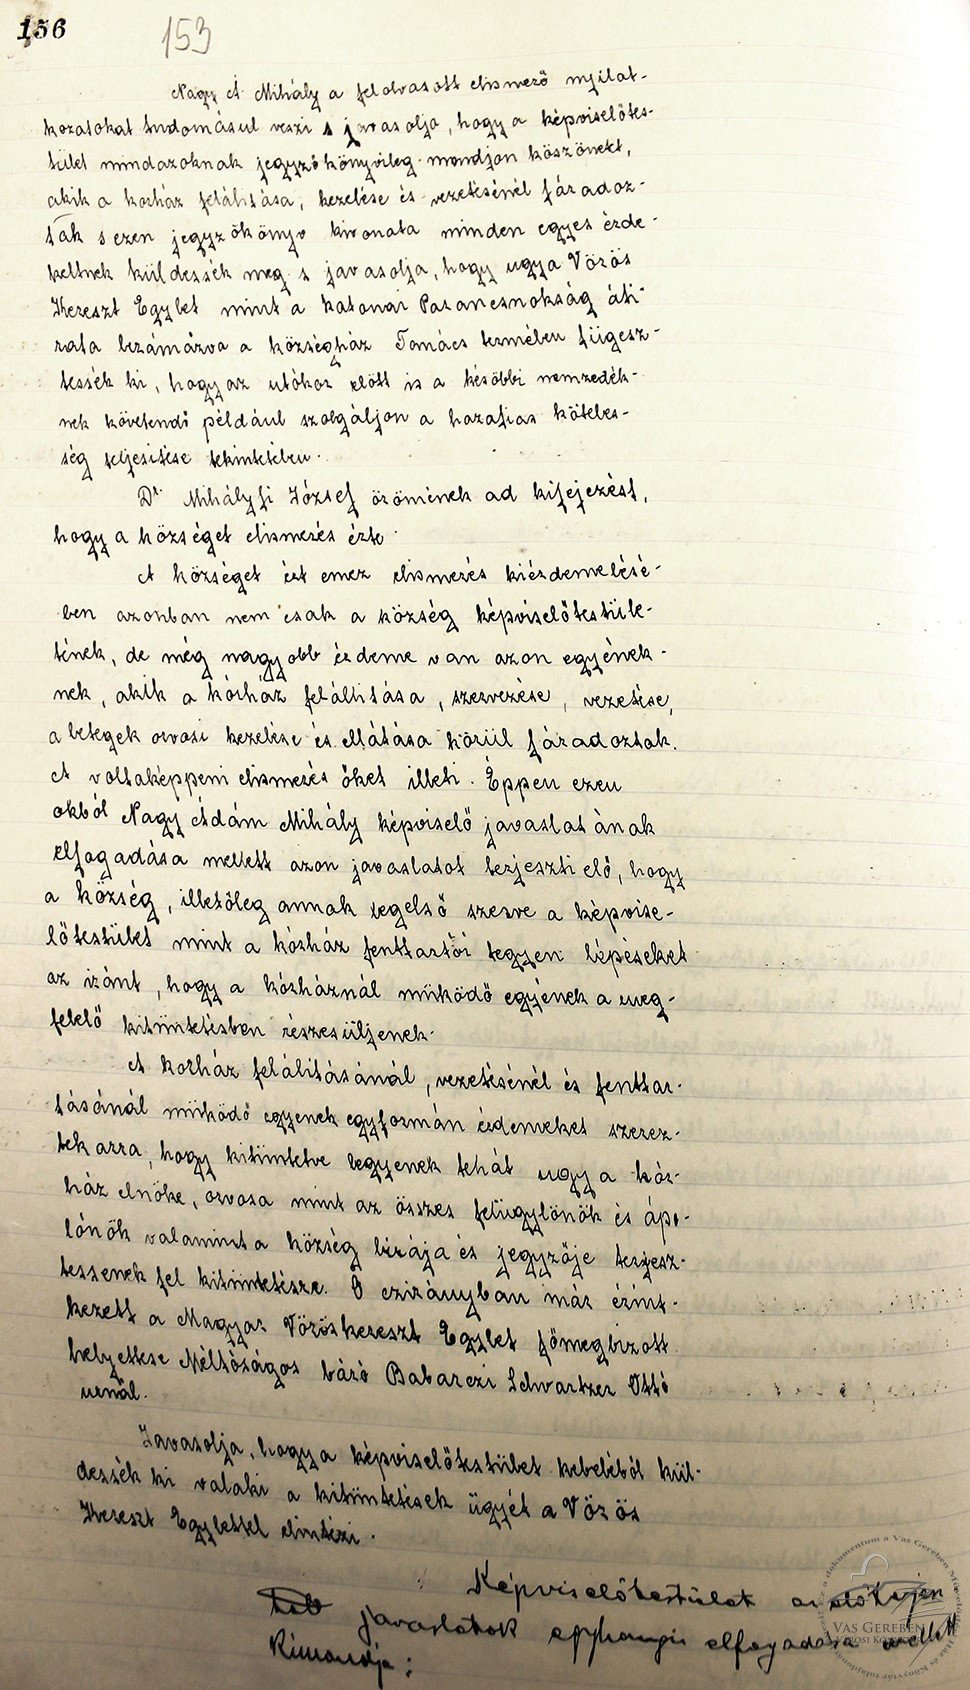 156
153
Nagy Á Mihály a felolvasott elismerő nyilat-
kozatokat tudomásul veszi s javasolja, hogy a képviselőtes-
tület mindazoknak jegyzőkönyvileg mondjon köszönetet,
akik a korház felálitása, kezelése és vezetésénél fáradoz-
tak s ezen jegyzőkönyv kivonata minden egyes érde-
keltnek küldessék meg s javasolja, hogy ugy a Vörös
Kereszt Egylet mint a katonai Parancsnokság áti-
rata berámázva a községház Tanács termében függesz-
tessék ki, hogy az utókor előtt is a későbbi nemzedék-
nek követendő például szolgáljon a hazafias köteles-
ség teljesitése tekintetében.
Dr. Mihályfi József örömének ad kifejezést,
hogy a községet elismerés érte.
A községet ért emez elismerés kiérdemelésé-
ben azonban nem csak a község képviselőtestüle-
tének, de még nagyobb érdeme van azon egyének-
nek, akik a kórház felállitása, szervezése, vezetése,
a betegek orvosi kezelése és ellátása körül fáradoztak.
A voltaképpeni elismerés őket illeti. Éppen ezen
okból Nagy Ádám Mihály képviselő javaslatának
elfogadása mellett azon javaslatot terjeszti elő, hogy
a község, illetőleg annak legelső szerve a képvise-
lőtestület mint a kórház fenttartói tegyen lépéseket
az iránt, hogy a kórháznál müködő egyének a meg-
felelő kitüntetésben részesüljenek.
A korház felálitásánál, vezetésénél és fenttar-
tásánál müködő egyenek egyformán érdemeket szerez-
tek arra, hogy kitüntetve legyenek tehát ugy a kór-
ház elnöke, orvosa mint az összes felügylönők és ápo-
lónők valamint a község birája és jegyzője terjesz-
tessenek fel kitüntetésre. Ő ezirányban már érint-
kezett a Magyar Vöröskereszt Egylet főmegbizott
helyettese Méltóságos báró Babarczi Schwartzer Ottó
urnál.
Javasolja, hogy a képviselőtestület kebeléből kül-
dessék ki valaki a kitüntetések ügyét a Vörös
Kereszt Egylettel elintézi.
Képviselőtestület az
javaslatok egyhangu elfogadása mellett
Kimondja:
VAS GEREBEN